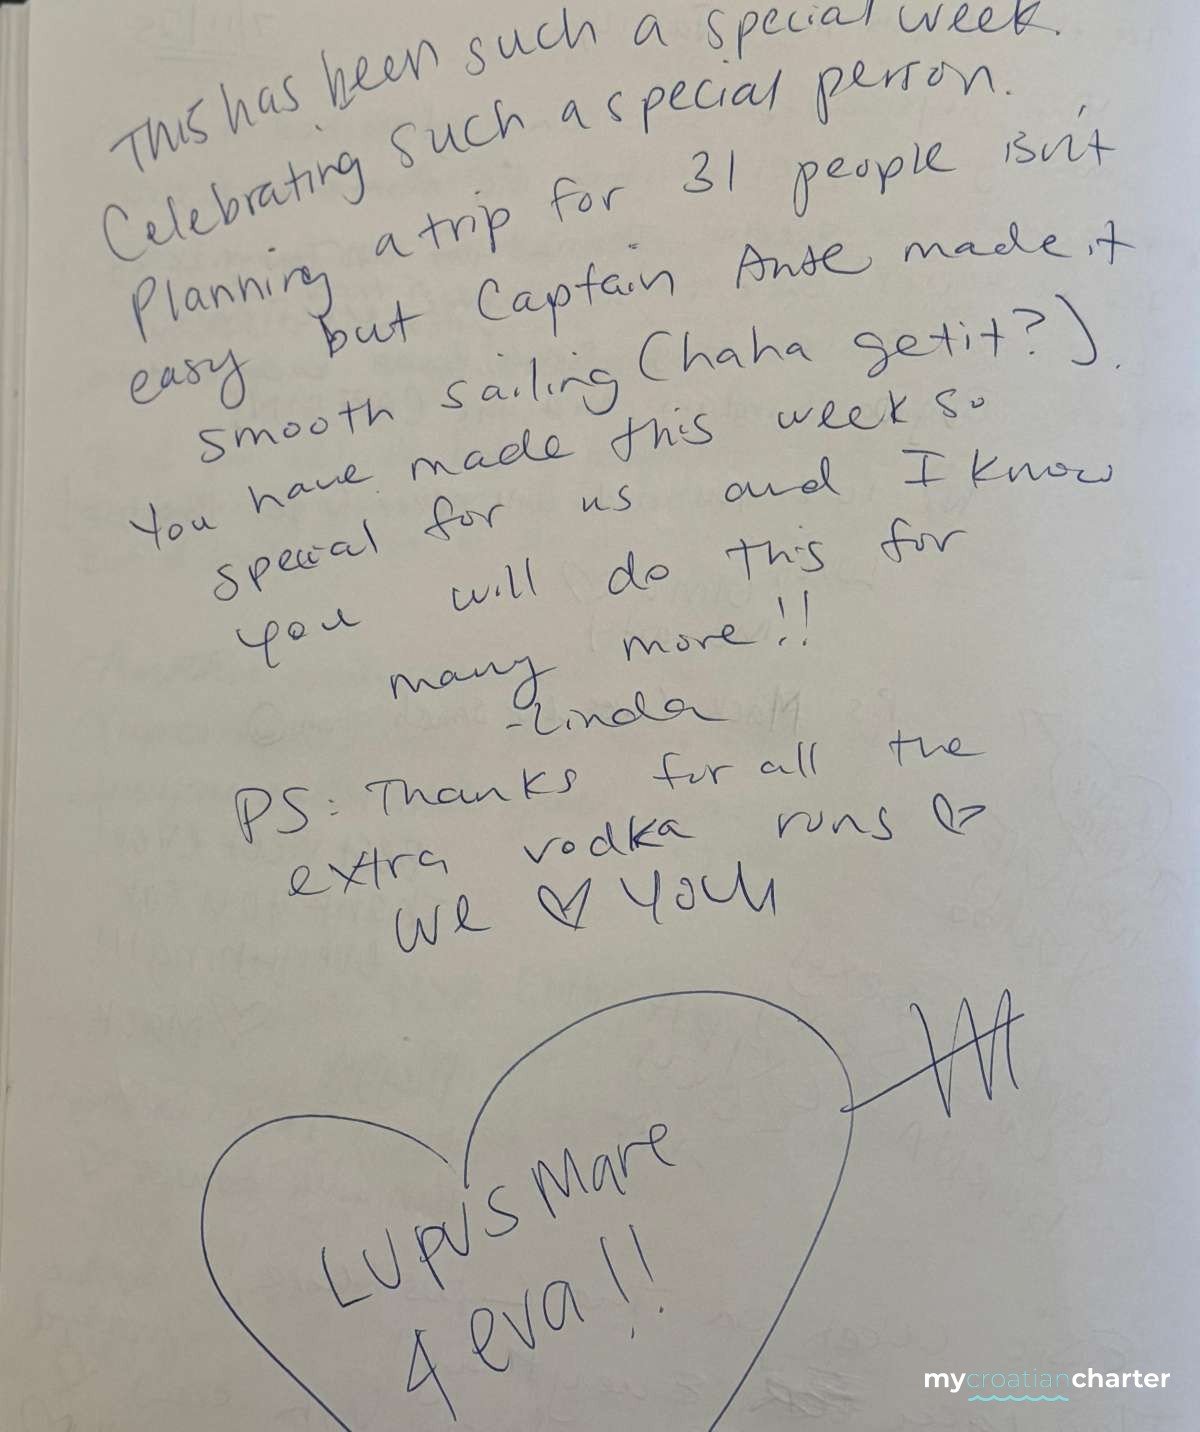 This has been such a special week.
Celebrating such a special person.
Planning a trip for 31 people isn't
easy but Captain Ante made it
smooth sailing (haha get it?).
You have made this week so
special for us and I know
you will do this for
many more!!
-Linda
PS: Thanks for all the
extra vodka runs ♡
We ♡ You
Lupus Mare
4 eva!!
mycroatiancharter